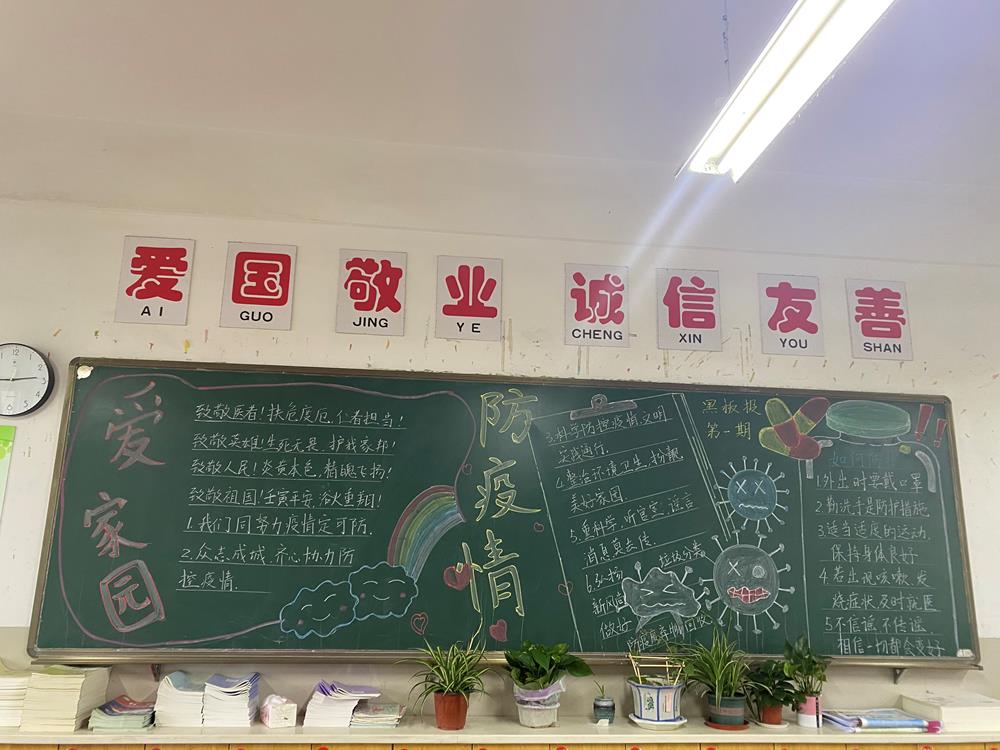 爱 国 敬 业 诚 信 友 善
AI GUO JING YE CHENG XIN YOU SHAN
爱家园
致敬医者!扶危度厄,仁者担当!
致敬英雄!生死无畏,护我家邦!
致敬人民!炎黄本色,精魄飞扬!
致敬祖国!壬寅平安,浴火重翔!
1.我们同努力疫情定可防.
2.众志成城,齐心协力防
控疫情.
防疫情
3.科学防控疫情文明
实践随行.
4.整治环境卫生,扮靓
美好家园
5.重科学,听官宣,谣言
消息莫去传
6.弘扬
新风尚
做好
垃圾分类
回收
黑板报
第一期
如何防
1.外出时要戴口罩
2.勤洗手是防护措施
3.适当适度的运动.
保持身体良好
4.若出现咳嗽,发
烧症状及时就医
5.不信谣,不传谣.
相信一切都会变好
12
3
6